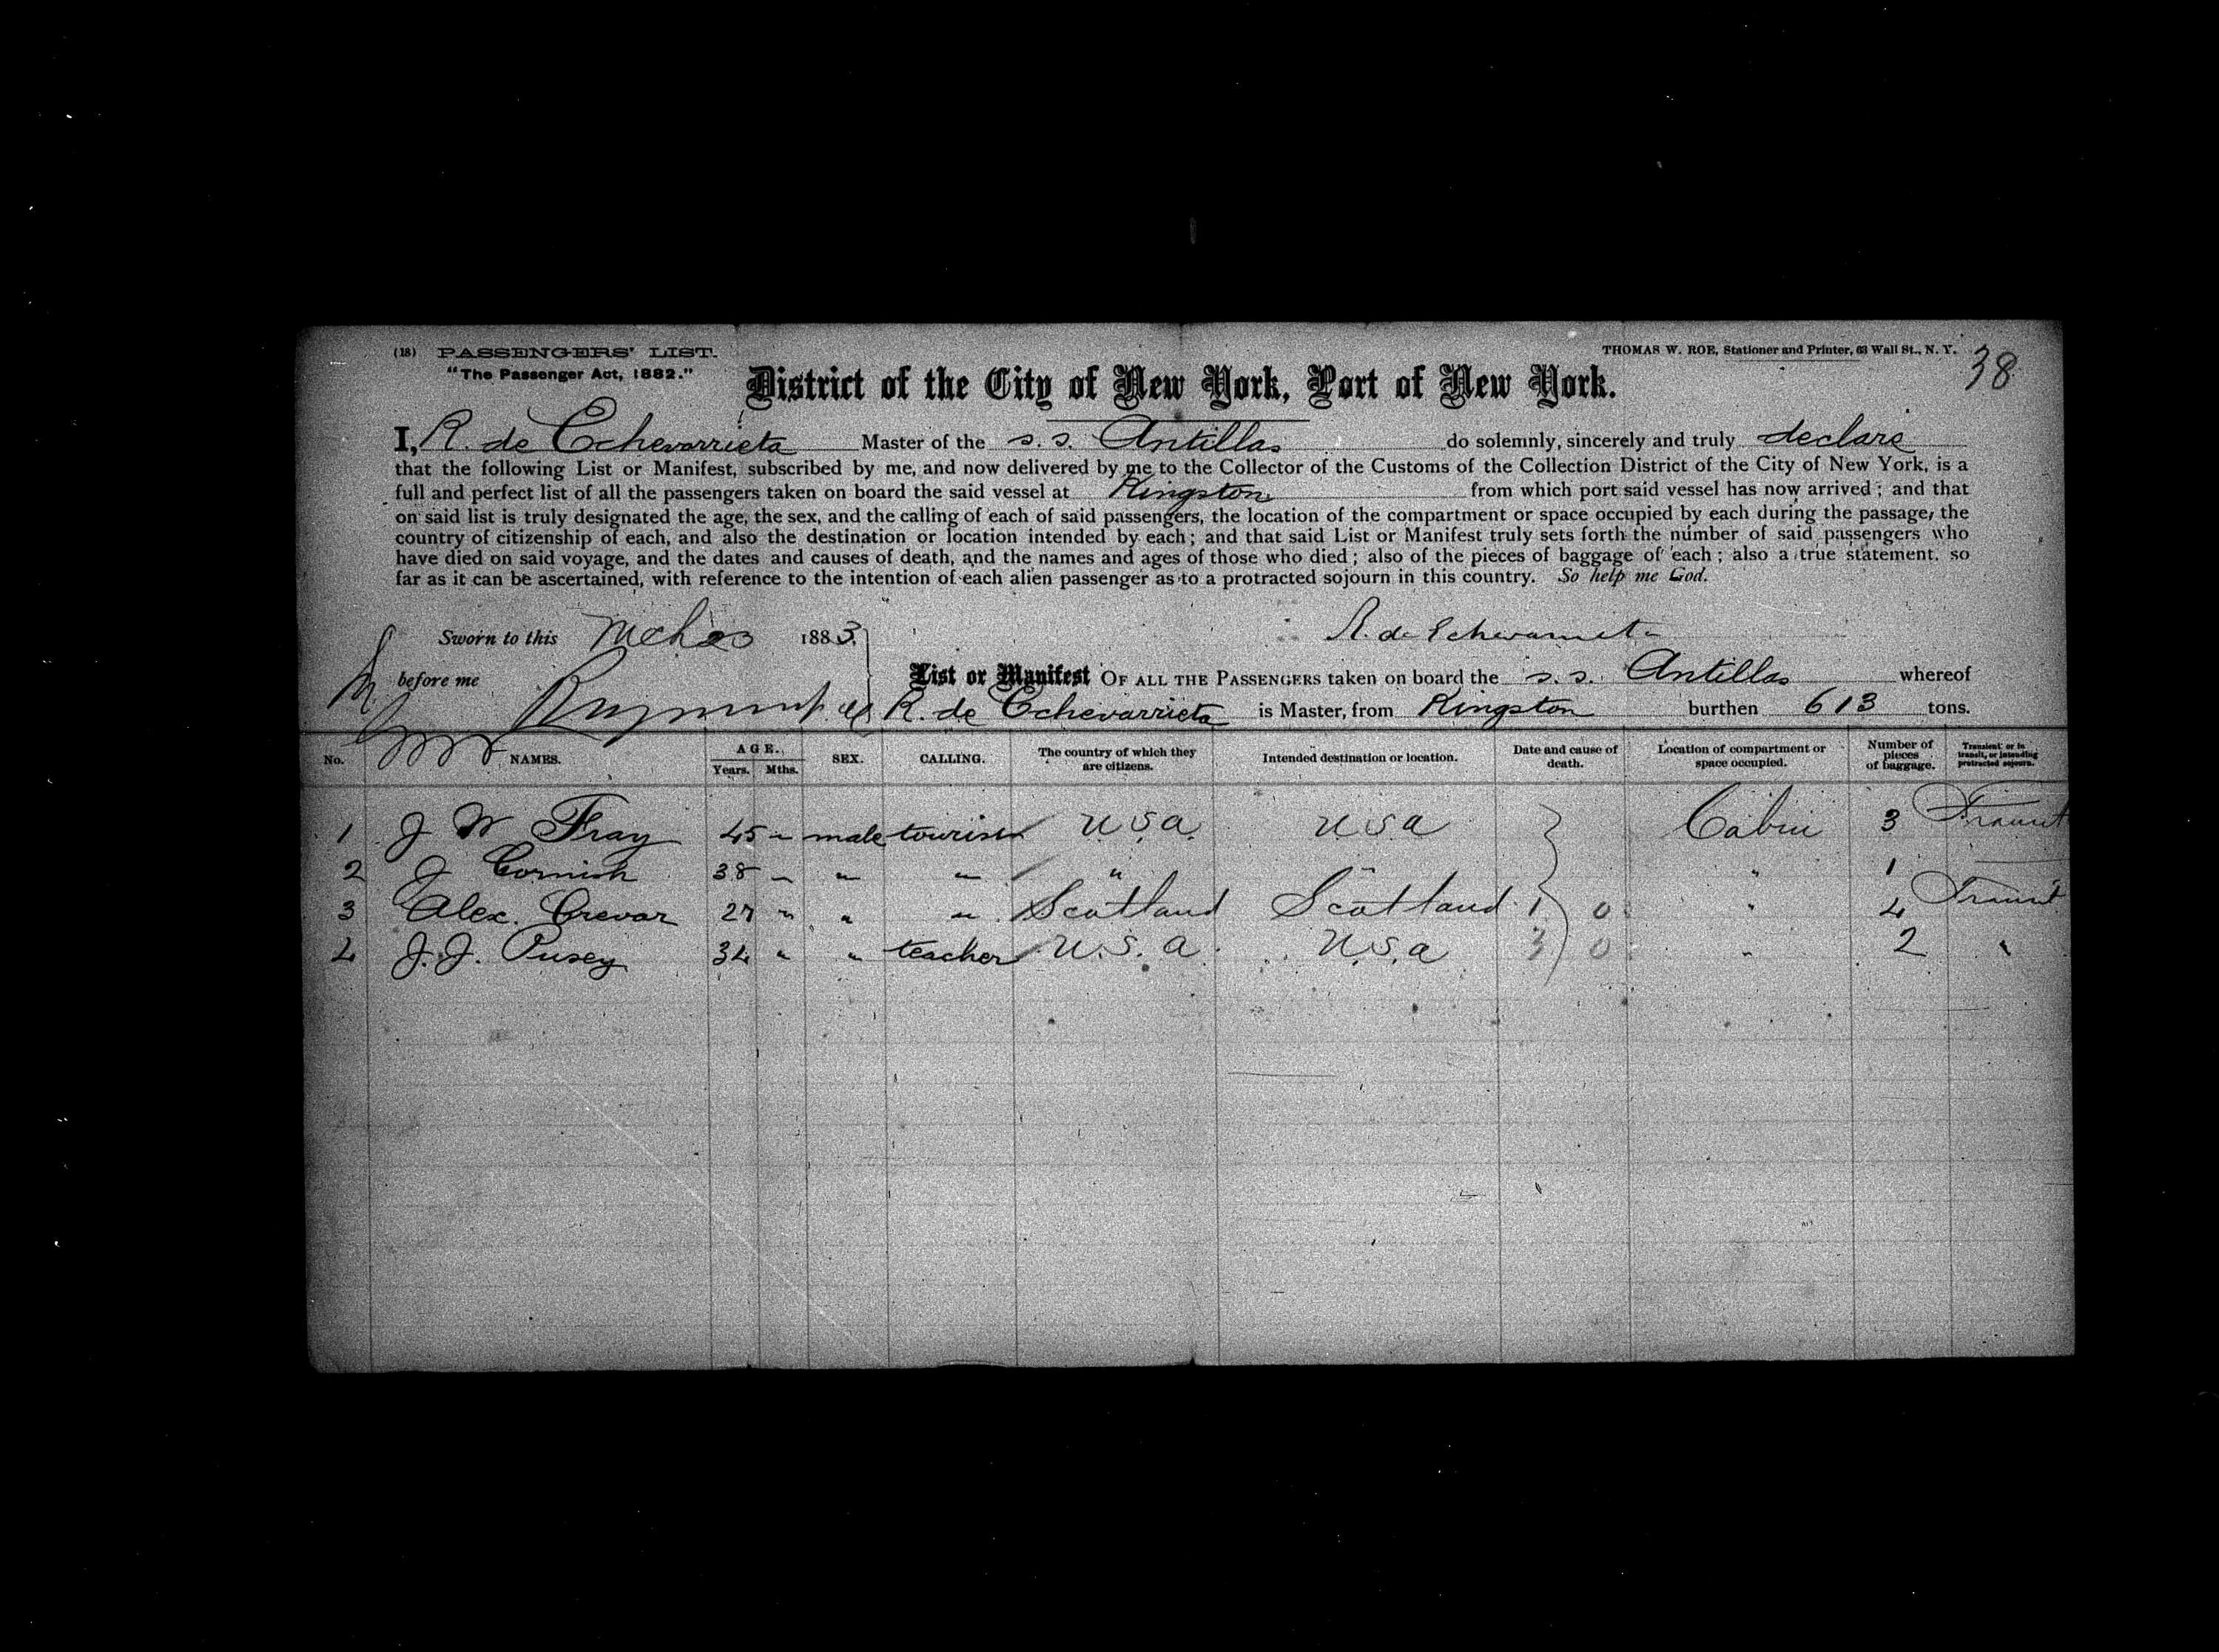 (18) PASSENGERS' LIST.
"The Passenger Act, 1882."
THOMAS W. ROE, Stationer and Printer, 63 Wall St., N. Y.
38
District of the City of New York, Port of New York.
I, R. de Echevarrieta Master of the s.s. Antillas do solemnly, sincerely and truly declare
that the following List or Manifest, subscribed by me, and now delivered by me to the Collector of the Customs of the Collection District of the City of New York, is a
full and perfect list of all the passengers taken on board the said vessel at Kingston from which port said vessel has now arrived; and that
on said list is truly designated the age, the sex, and the calling of each of said passengers, the location of the compartment or space occupied by each during the passage, the
country of citizenship of each, and also the destination or location intended by each; and that said List or Manifest truly sets forth the number of said passengers who
have died on said voyage, and the dates and causes of death, and the names and ages of those who died; also of the pieces of baggage of each; also a true statement, so
far as it can be ascertained, with reference to the intention of each alien passenger as to a protracted sojourn in this country. So help me God.
Sworn to this 1883
R. de Echevarrieta
before me
List or Manifest OF ALL THE PASSENGERS taken on board the s.s. Antillas whereof
R. de Echevarrieta is Master, from Kingston burthen 613 tons.
No. NAMES. AGE. Years. Mths. SEX. CALLING. The country of which they are citizens. Intended destination or location. Date and cause of death. Location of compartment or space occupied. Number of pieces of baggage. Transient or in transit, or intending protracted sojourn.
1 J W Fray 45 " male tourist U S a. U S a Cabin 3 Transit
2 J Cornish 38 " " " " " 1
3 Alex. Crevar 27 " " " Scotland Scotland 1 0 " 4 Transit
4 J. J. Pusey 34 " " teacher U. S. a. U. S. a 3 0 " 2 "